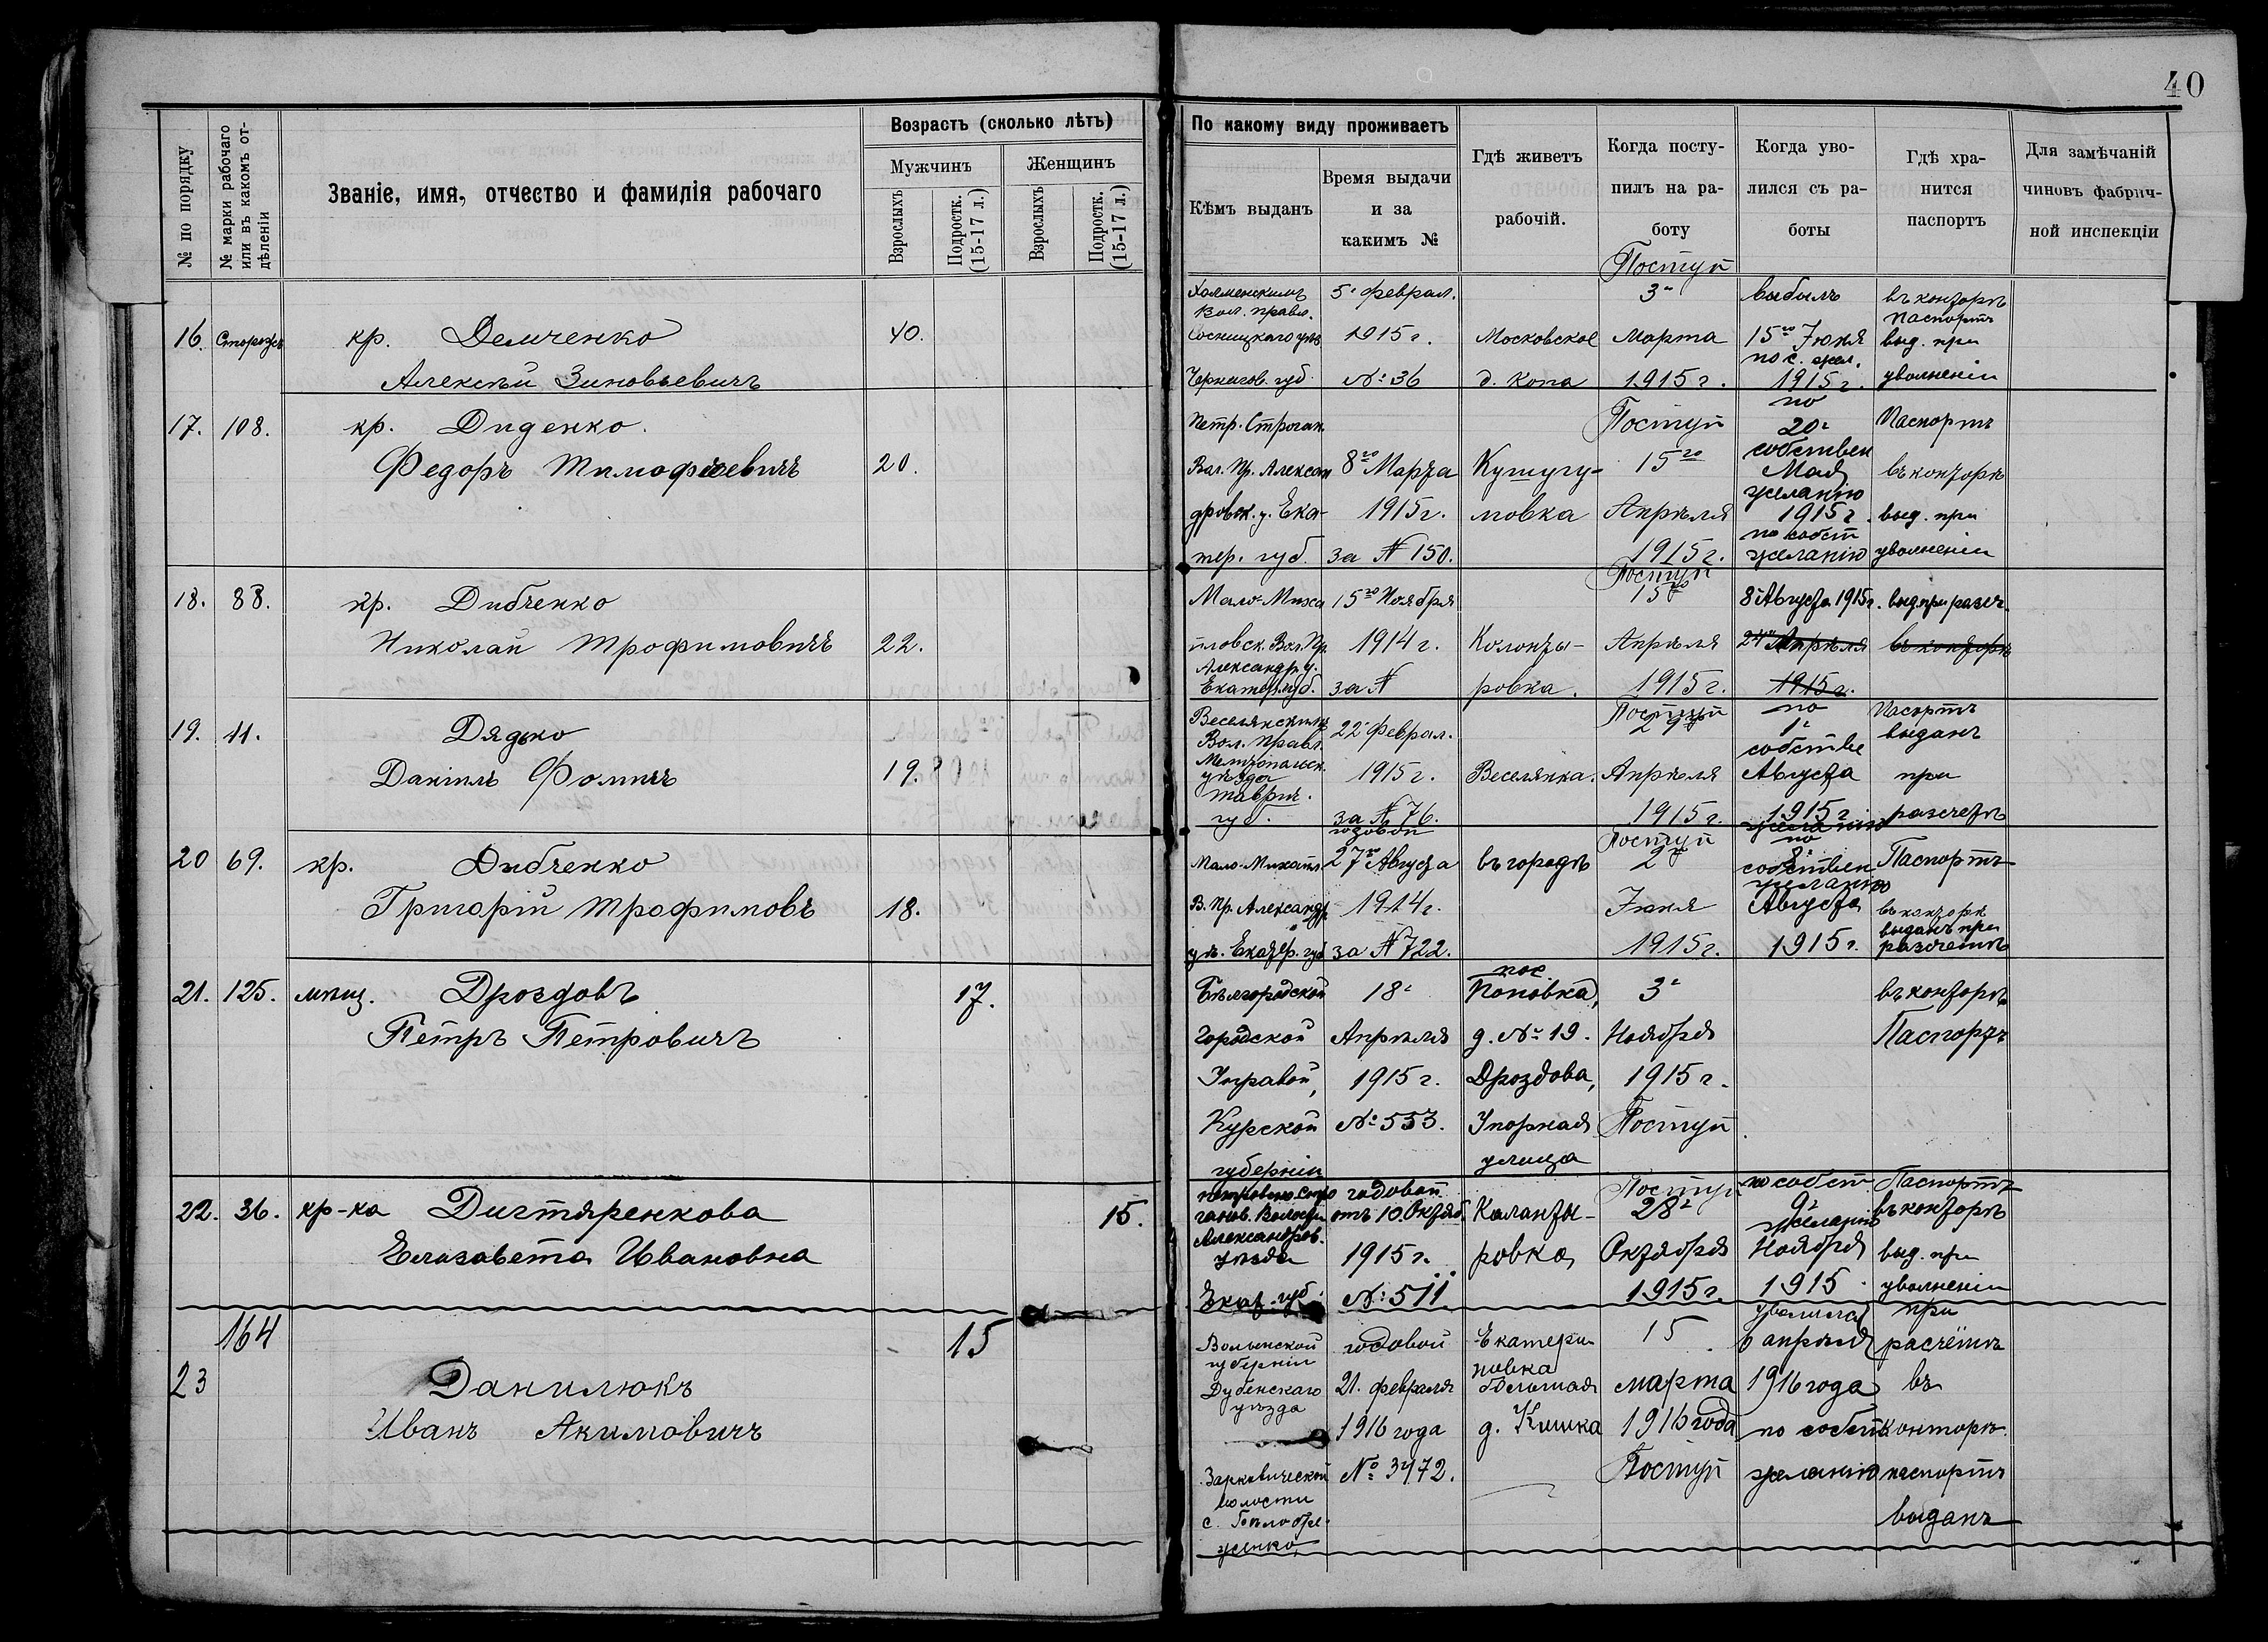 40
№ по порядку
№ марки рабочаго или въ какомъ отдѣленіи
Званіе, имя, отчество и фамилія рабочаго
Возрастъ (сколько лѣтъ)
Мужчинъ
Женщинъ
Взрослыхъ
Подростк. (15-17 л.)
Взрослыхъ
Подростк. (15-17 л.)
По какому виду проживаетъ
Кѣмъ выданъ
Время выдачи
и за
какимъ №
Гдѣ живетъ
рабочій.
Когда посту-
пилъ на ра-
боту
Когда уво-
лился съ ра-
боты
Гдѣ хра-
нится
паспортъ
Для замѣчаній
чиновъ фабрич-
ной инспекціи
16. Сторожъ
кр. Демченко
Алексѣй Зиновьевичъ
40.
Вол. правл.
Чернигов. губ.
5г Феврал.
1915 г.
№ 36
Московское
д. Копа
Поступ
3г
Марта
1915 г.
выбылъ
15го Іюня
по с. жел.
1915 г.
въ конторѣ
паспортъ
выд. при
уволненіи
17. 108.
кр. Диденко.
Федоръ Тимофѣевичъ
20.
Петр. Строган.
Вол. Пр. Алексан
дровск. у. Ека-
тер. губ.
8го Марта
1915 г.
за № 150.
Кушугу-
мовка
Поступ
15го
Апрѣля
1915 г.
по
20г
собствен
Мая
желанію
1915 г.
по собст
желанію
Паспортъ
въ конторѣ
выд. при
уволненіи
18. 88.
кр. Дибченко
Николай Трофимовичъ
22.
Мало-Миха
йловск. Вол. Пр.
Александр. у.
Екатер. губ.
15го Ноября
1914 г.
за №
Колонты-
ровка.
Поступ
15го
Апрѣля
1915 г.
8г Августа 1915 г.
24го Апрѣля
1915 г.
выд. при расч.
въ конторѣ
19. 11.
Дядько
Даніилъ Фомичъ
19.
Веселянскимъ
Вол. Правл.
Мелитопольск.
уѣзда
Таврич.
губ.
22г Феврал.
1915 г.
за № 76.
Веселянка.
Поступ
29г
Апрѣля
1915 г.
по
1г
собстве
Августа
1915 г.
желанію
Паспортъ
выданъ
при
разсчетѣ
20 69.
кр. Дибченко
Григорій Трофимовъ
18.
Мало-Михайл
В. Пр. Александр
уѣ. Екатер. губ
годовой
27го Августа
1914 г.
за № 722.
въ городѣ
Поступ
2г
Іюня
1915 г.
по
8г
собствен
желанію
Августа
1915 г.
Паспортъ
въ конторѣ
выданъ при
разсчетѣ
21. 125.
мѣщ. Дроздовъ
Петръ Петровичъ
17.
Бѣлгородской
Городской
Управой,
Курской
губерніи
18г
Апрѣля
1915 г.
№ 553.
пос.
Поповка,
д. № 19.
Дроздова,
Упорная
улица
3г
Ноября
1915 г.
Поступ
въ конторѣ
Паспортъ
22. 36.
кр-ка Дигтяренкова
Елизавета Ивановна
15.
Петровско. Стро
ганов. Волости
Александров.
уѣзда
Екат. губ.
годовой
отъ 10. Октяб.
1915 г.
№ 511
Каланты-
ровка
Поступ
28г
Октября
1915 г.
по собст
9г
желанію
Ноября
1915
Паспортъ
въ конторѣ
выд. при
уволненіи
164
23
Данилюкъ
Иванъ Акимовичъ
15
Волынской
губерніи
Дубенскаго
уѣзда
волости
годовой
21. февраля
1916 года
№ 3472.
Екатери
новка
большая
д. Кишка
15
марта
1916 года
Поступ
уволился
6 апрѣля
1916 года
по собств
желанію
при
расчётѣ
въ
конторѣ.
паспортъ
выданъ